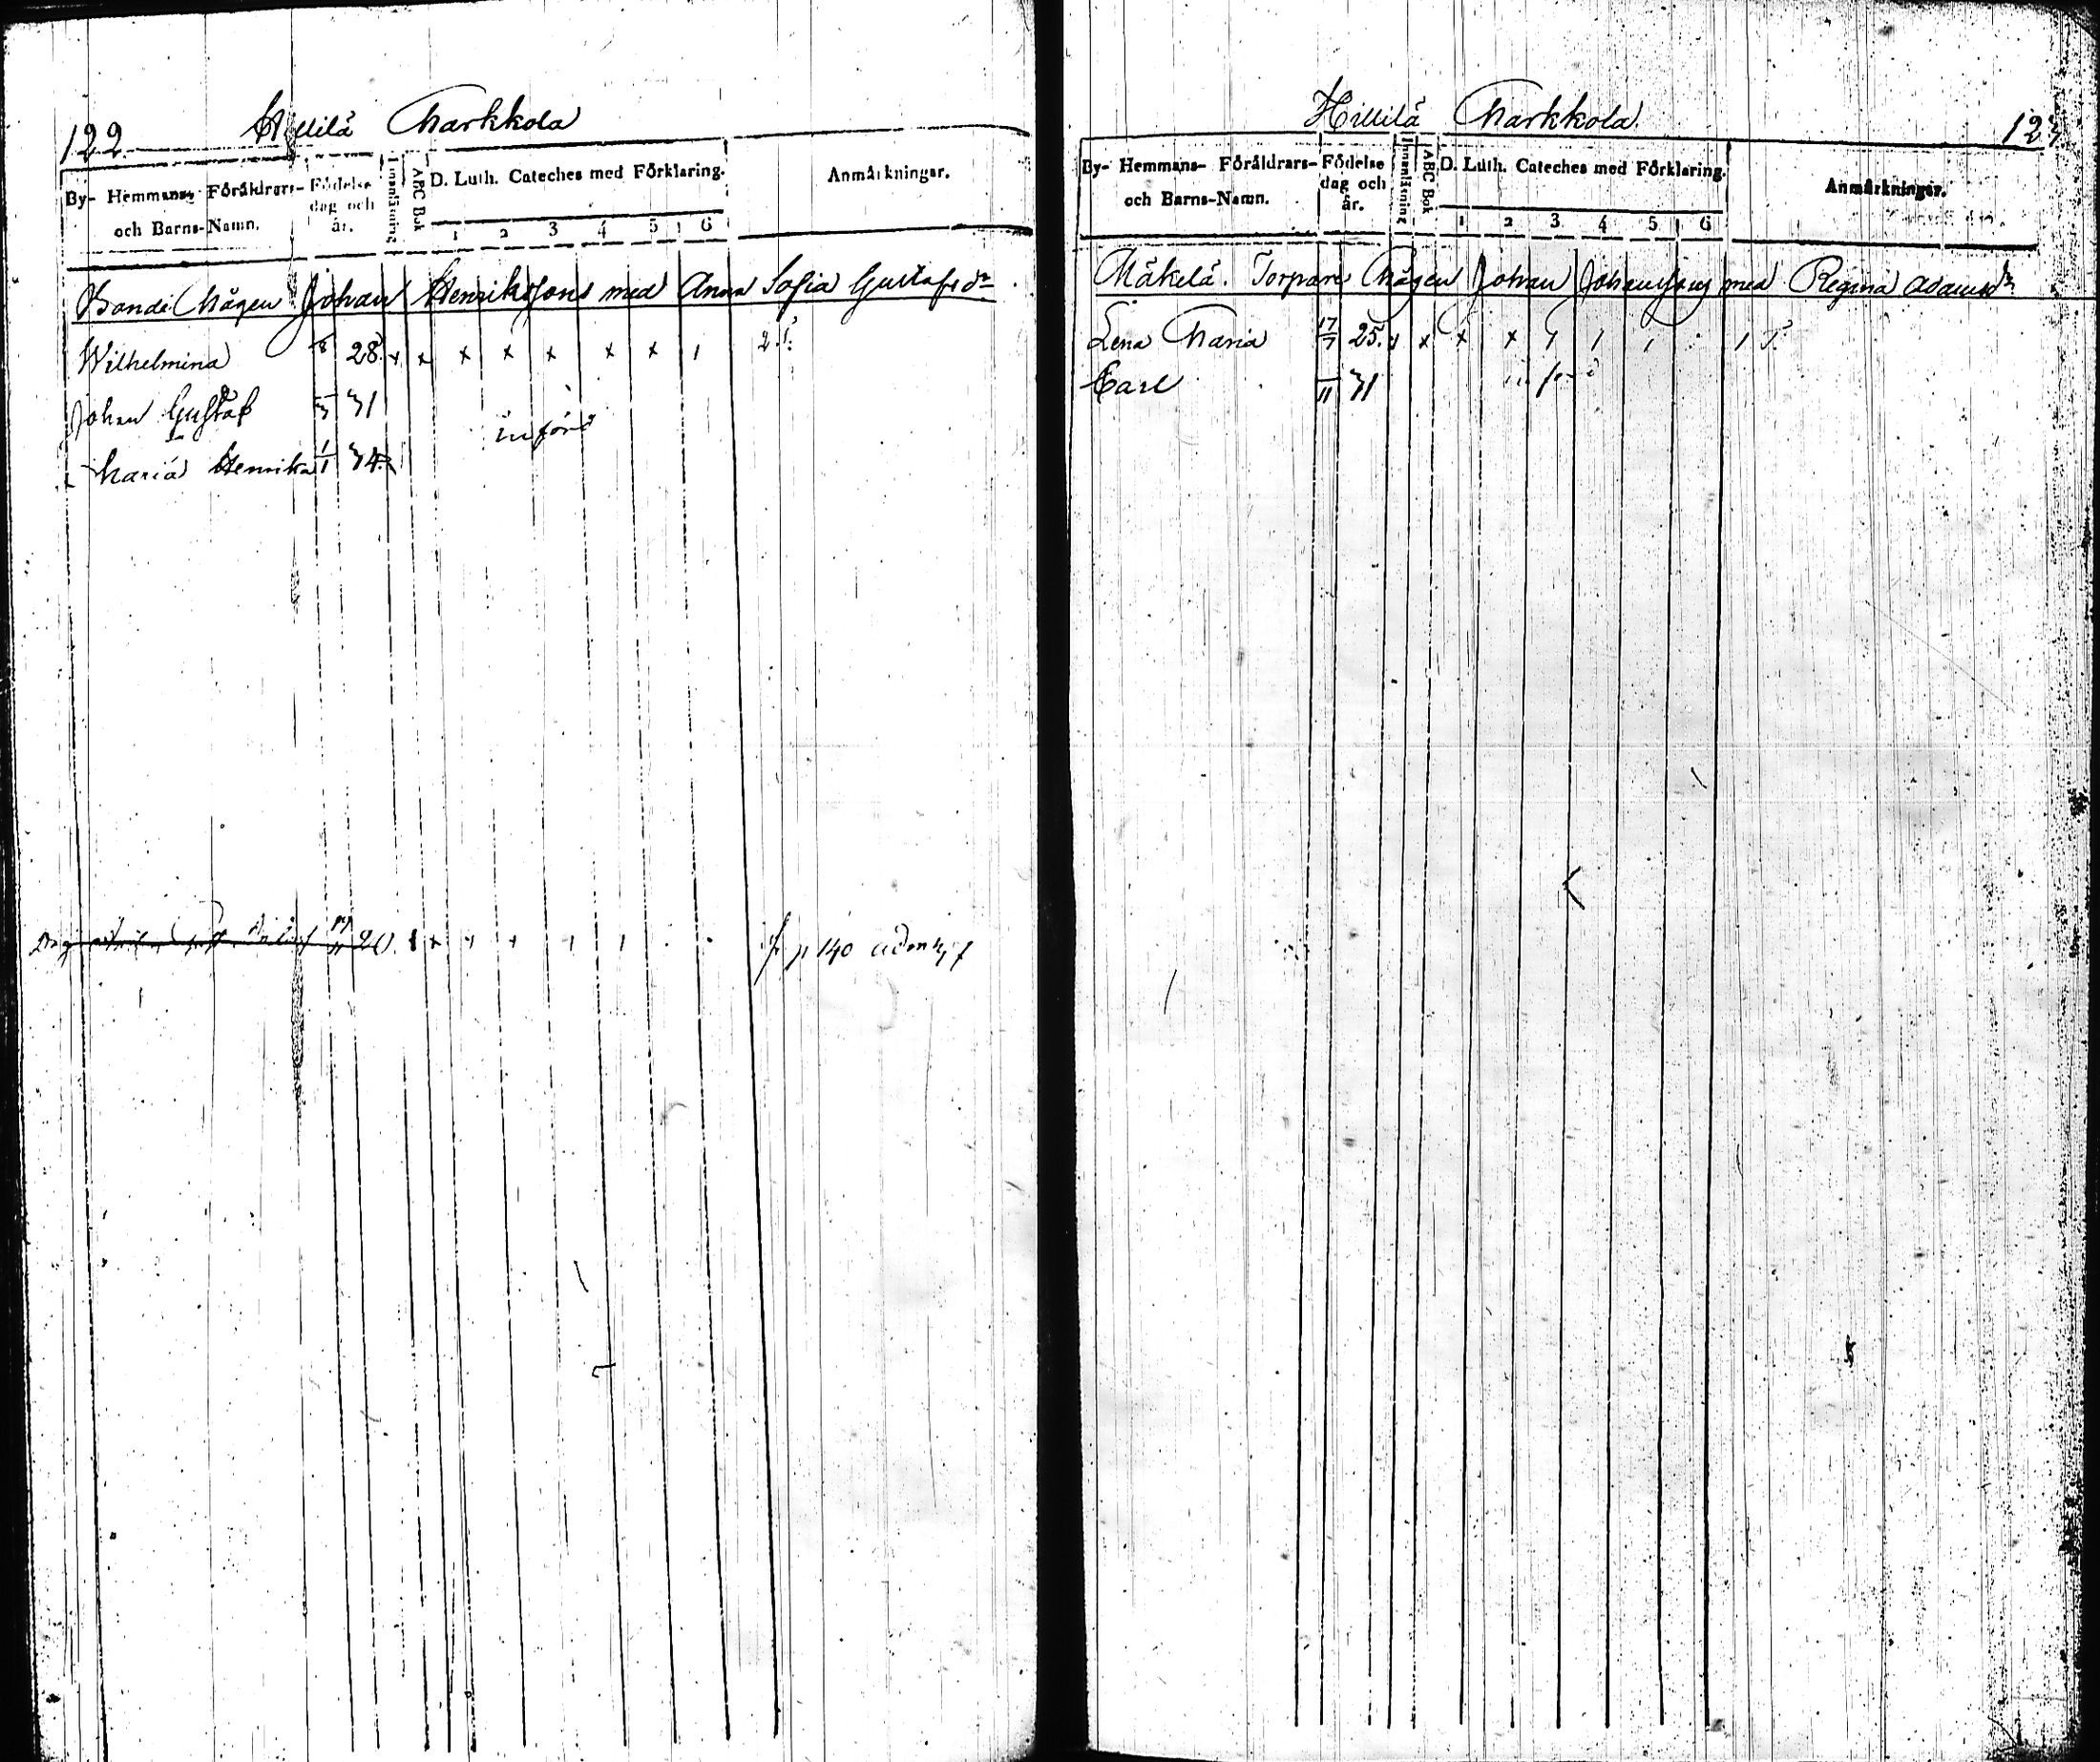 122. Hillilä Markkola
By- Hemmans- Föräldrars- och Barns-Namn. Födelse dag och år. Innanläsning ABC Bok D. Luth. Cateches med Förklaring. Anmärkningar.
1 2 3 4 5 6
Bonde Mågen Johan Henrikssons med Anna Sofia Gustafsdr
Wilhelmina 28. x x x x x x x 1
Johan Gustaf 31
införd
Maria Henrika 1/1 34
20. p 140
Hillilä Markkola. 123
By- Hemmans- Föräldrars- och Barns-Namn. Födelse dag och år. Innanläsning ABC Bok D. Luth. Cateches med Förklaring. Anmärkningar.
1 2 3 4 5 6
Mäkelä. Torpare Mågen Johan Johanssons med Regina Adamsdr
Lena Maria 17/7 25. x x x x
Carl 31 införd